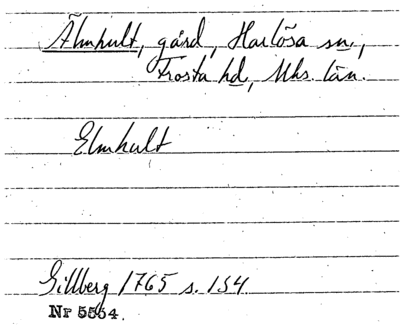 Älmhult, gård, Harlösa sn.,
Frosta hd, Mhs. län.
Elmhult
Gillberg 1765 s. 154
Nr 5554.